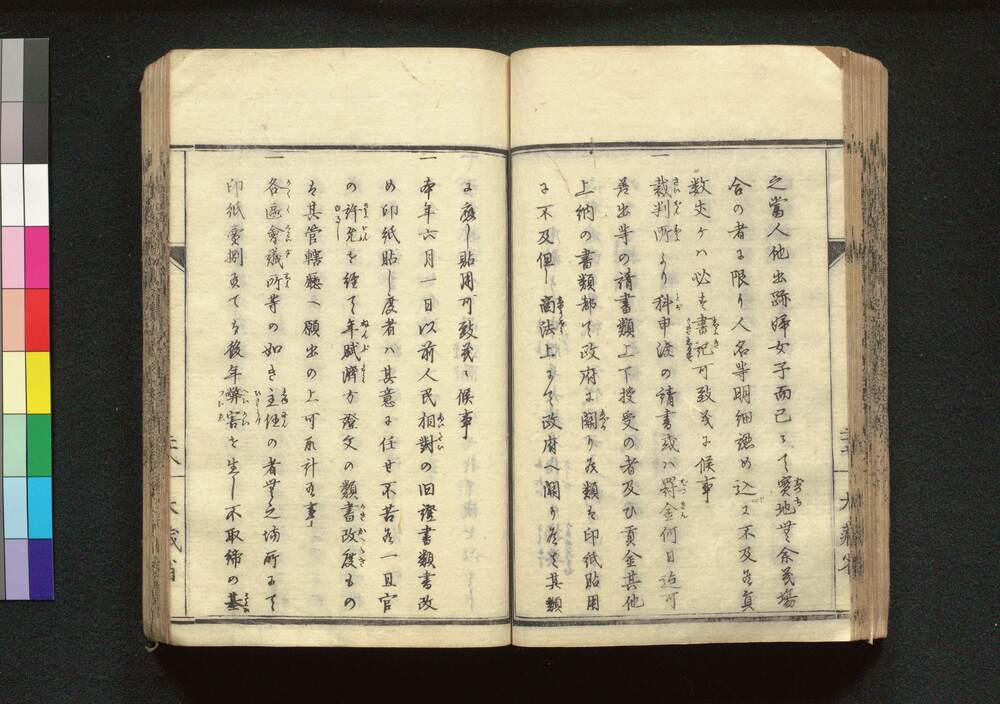 之當人他出跡婦女子而已ニて實地無余義場
合の者に限り人名等明細認め込に不及員
数丈ケハ必す書記可致義に候事
一 裁判所より科申渡の請書或ハ罰金何日迄可
差出等の請書類上下授受の者及ひ貢金其他
上納の書類都て政府に關り候類は印紙貼用
に不及但し商法上にて政府へ關り候は其類
に應し貼用可致義に候事
一 本年六月一日以前人民相對の旧證書類書改
め印紙貼し度者ハ其意に任せ不苦候一旦官
の許允を経て年賦濟方證文の類書改度もの
は其管轄廳へ願出の上可取計事
一 各區會議所等の如き主任の者無之場所にて
印紙賣捌候ては後年弊害を生し不取締の基
大藏省